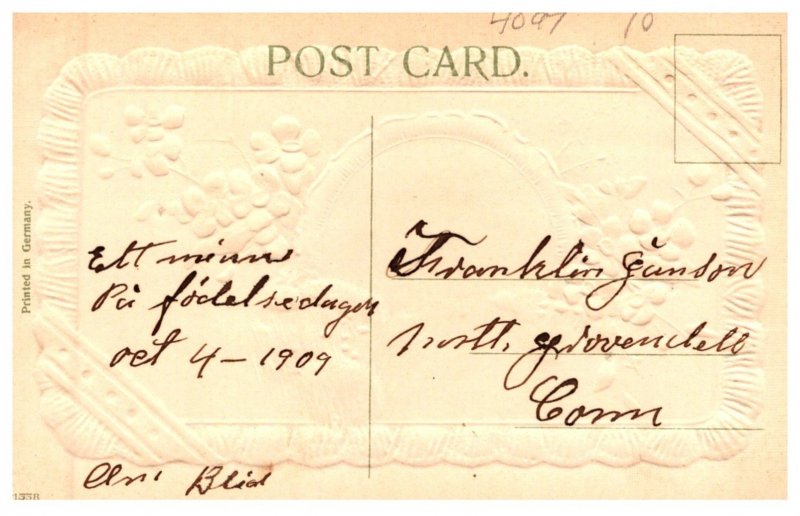 4097 10
POST CARD.
Printed in Germany.
Ett minne
På födelsedagen
oct 4 - 1909
Franklin Janson
north growendell
Conn
1338